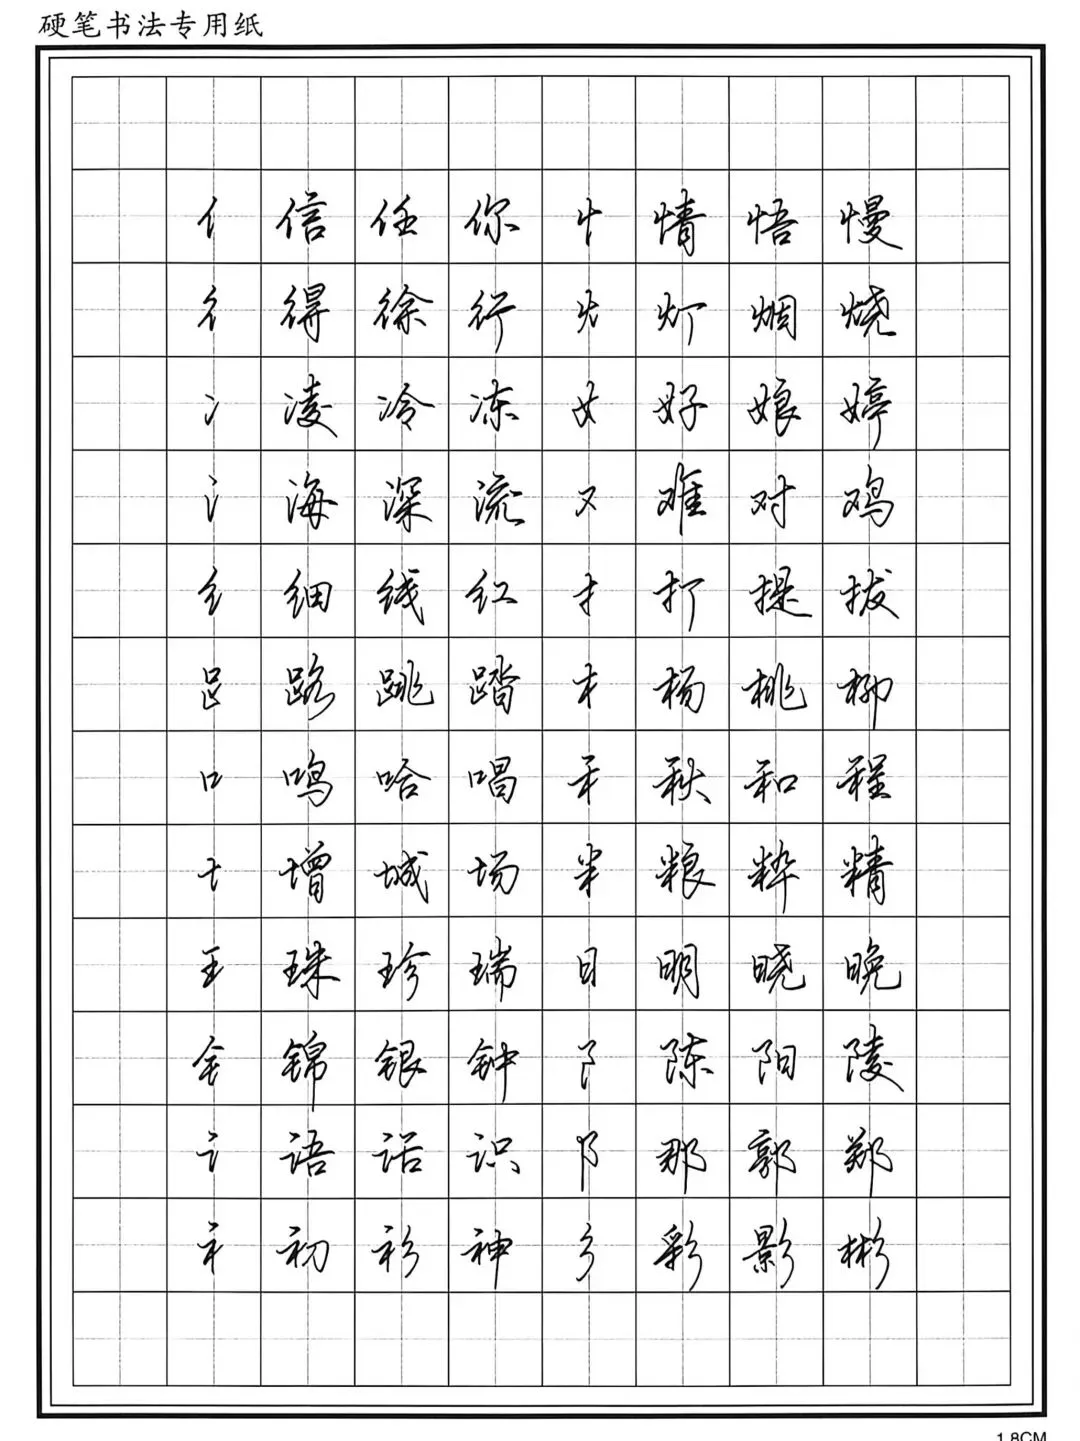 硬笔书法专用纸
亻 信 任 你 忄 情 悟 慢
彳 得 徐 行 火 灯 烟 烧
冫 凌 冷 冻 女 好 娘 婷
氵 海 深 流 又 难 对 鸡
纟 细 线 红 扌 打 提 拔
𧾷 路 跳 踏 木 杨 桃 柳
口 鸣 哈 唱 禾 秋 和 程
土 增 城 场 米 粮 粹 精
王 珠 珍 瑞 日 明 晓 晚
钅 锦 银 钟 阝 陈 阳 陵
讠 语 话 识 阝 那 郭 郑
衤 初 衫 神 彡 彩 影 彬
1.8CM